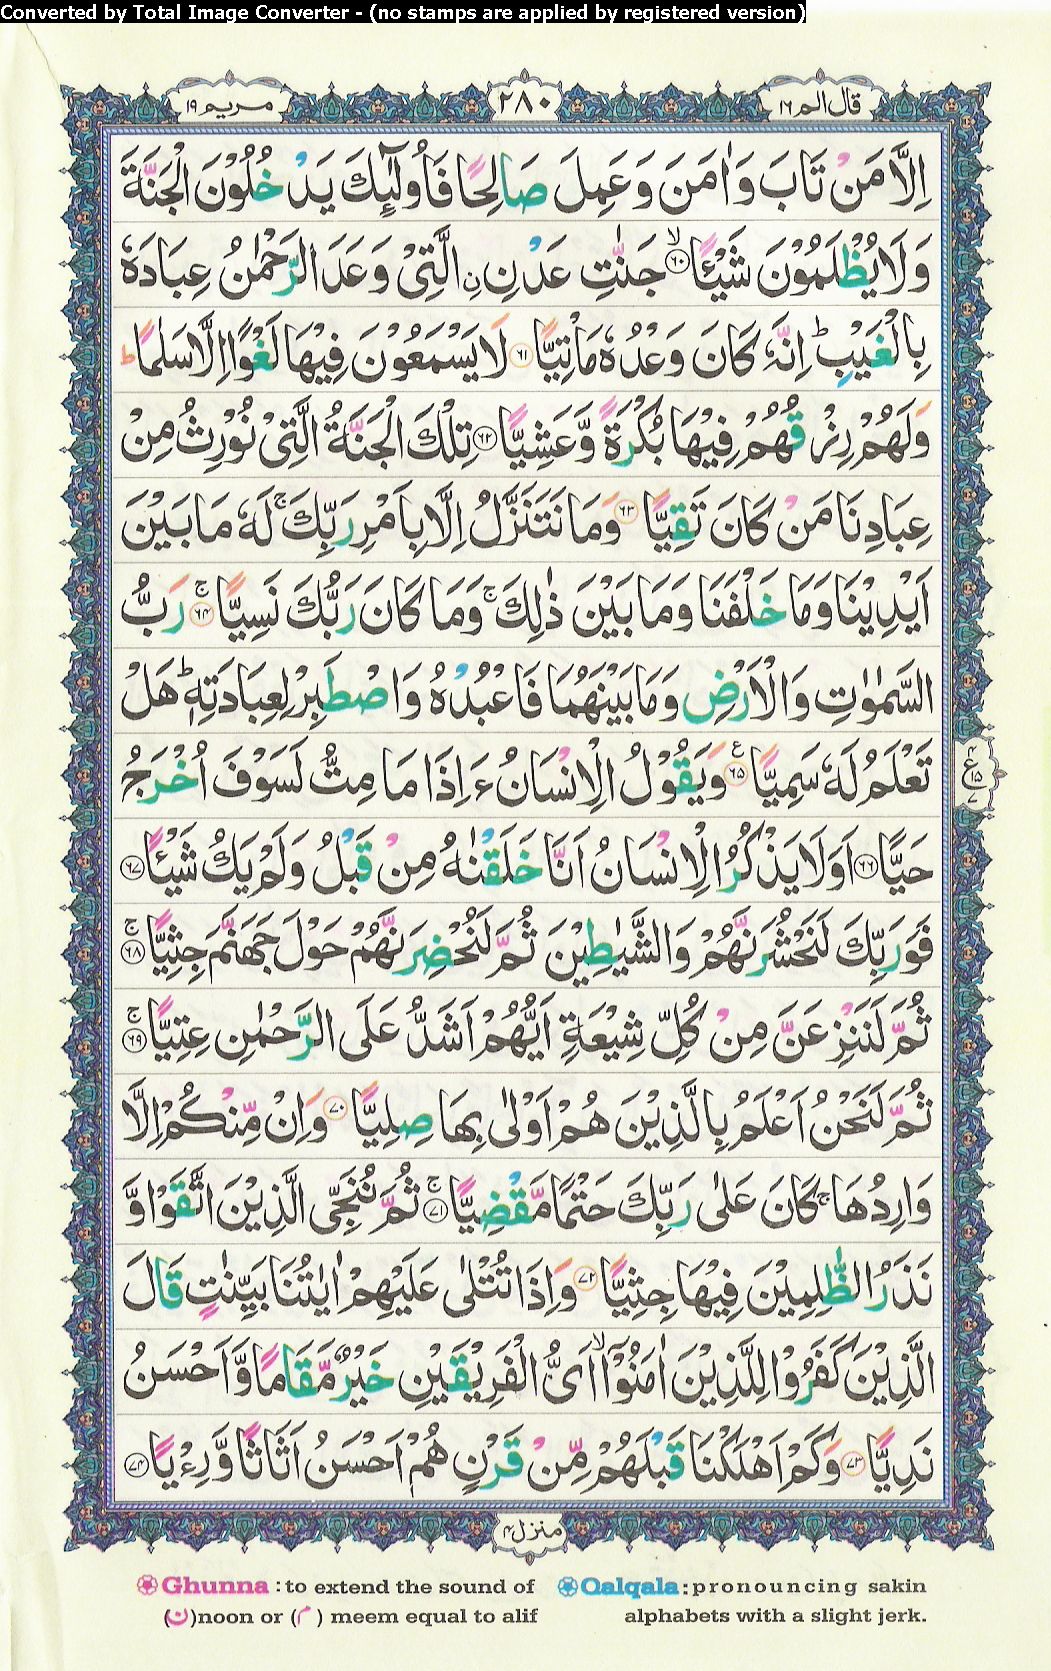 Converted by Total Image Converter - (no stamps are applied by registered version)
قال الم ١٦
٢٨٠
مريم ١٩
اِلَّا مَنْ تَابَ وَاٰمَنَ وَعَمِلَ صَالِحًا فَاُولٰٓئِكَ يَدْخُلُوْنَ الْجَنَّةَ
وَلَا يُظْلَمُوْنَ شَيْـًٔا ۙ﴿٦٠﴾ جَنّٰتِ عَدْنِ ࣙالَّتِيْ وَعَدَ الرَّحْمٰنُ عِبَادَهٗ
بِالْغَيْبِ ؕ اِنَّهٗ كَانَ وَعْدُهٗ مَاْتِيًّا ﴿٦١﴾ لَا يَسْمَعُوْنَ فِيْهَا لَغْوًا اِلَّا سَلٰمًا ؕ
وَلَهُمْ رِزْقُهُمْ فِيْهَا بُكْرَةً وَّعَشِيًّا ﴿٦٢﴾ تِلْكَ الْجَنَّةُ الَّتِيْ نُوْرِثُ مِنْ
عِبَادِنَا مَنْ كَانَ تَقِيًّا ﴿٦٣﴾ وَمَا نَتَنَزَّلُ اِلَّا بِاَمْرِ رَبِّكَ ۚ لَهٗ مَا بَيْنَ
اَيْدِيْنَا وَمَا خَلْفَنَا وَمَا بَيْنَ ذٰلِكَ ۚ وَمَا كَانَ رَبُّكَ نَسِيًّا ۚ﴿٦٤﴾ رَبُّ
السَّمٰوٰتِ وَالْاَرْضِ وَمَا بَيْنَهُمَا فَاعْبُدْهُ وَاصْطَبِرْ لِعِبَادَتِهٖ ؕ هَلْ
تَعْلَمُ لَهٗ سَمِيًّا ﴿٦٥﴾ ع وَيَقُوْلُ الْاِنْسَانُ ءَاِذَا مَا مِتُّ لَسَوْفَ اُخْرَجُ
٤ ع ١٥ ٧
حَيًّا ﴿٦٦﴾ اَوَلَا يَذْكُرُ الْاِنْسَانُ اَنَّا خَلَقْنٰهُ مِنْ قَبْلُ وَلَمْ يَكُ شَيْـًٔا ﴿٦٧﴾
فَوَرَبِّكَ لَنَحْشُرَنَّهُمْ وَالشَّيٰطِيْنَ ثُمَّ لَنُحْضِرَنَّهُمْ حَوْلَ جَهَنَّمَ جِثِيًّا ۚ﴿٦٨﴾
ثُمَّ لَنَنْزِعَنَّ مِنْ كُلِّ شِيْعَةٍ اَيُّهُمْ اَشَدُّ عَلَى الرَّحْمٰنِ عِتِيًّا ۚ﴿٦٩﴾
ثُمَّ لَنَحْنُ اَعْلَمُ بِالَّذِيْنَ هُمْ اَوْلٰى بِهَا صِلِيًّا ﴿٧٠﴾ وَاِنْ مِّنْكُمْ اِلَّا
وَارِدُهَا ۚ كَانَ عَلٰى رَبِّكَ حَتْمًا مَّقْضِيًّا ۚ﴿٧١﴾ ثُمَّ نُنَجِّي الَّذِيْنَ اتَّقَوْا وَّ
نَذَرُ الظّٰلِمِيْنَ فِيْهَا جِثِيًّا ﴿٧٢﴾ وَاِذَا تُتْلٰى عَلَيْهِمْ اٰيٰتُنَا بَيِّنٰتٍ قَالَ
الَّذِيْنَ كَفَرُوْا لِلَّذِيْنَ اٰمَنُوْٓا ۙ اَيُّ الْفَرِيْقَيْنِ خَيْرٌ مَّقَامًا وَّاَحْسَنُ
نَدِيًّا ﴿٧٣﴾ وَكَمْ اَهْلَكْنَا قَبْلَهُمْ مِّنْ قَرْنٍ هُمْ اَحْسَنُ اَثَاثًا وَّرِءْيًا ﴿٧٤﴾
منزل ٤
Ghunna : to extend the sound of
(ن)noon or (م) meem equal to alif
Qalqala : pronouncing sakin
alphabets with a slight jerk.